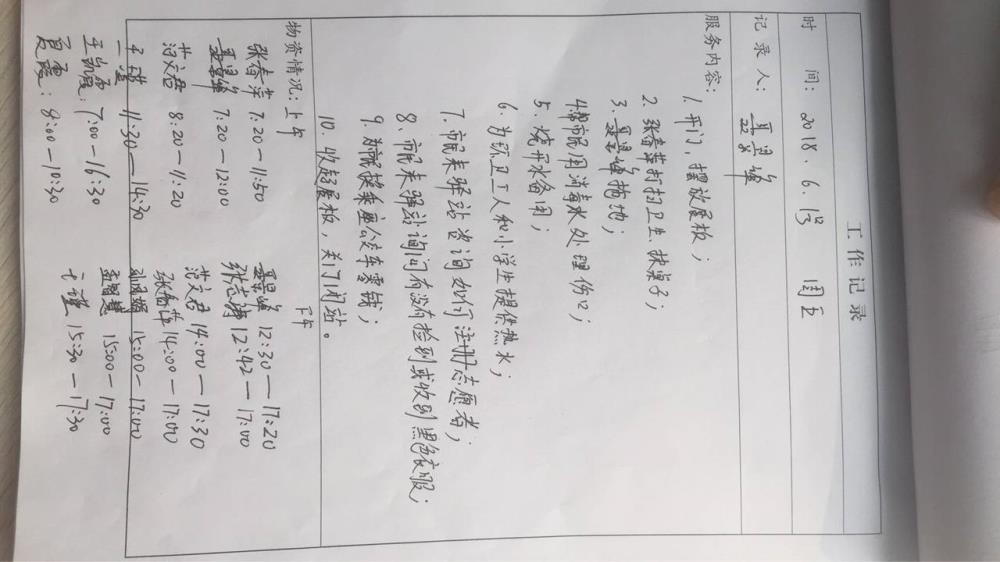 工作记录
时 间：2018.6.15 周五
记录人：聂晏峰
服务内容：
1.开门，摆放展板；
2.张春萍打扫卫生、抹桌子；
3.聂晏峰拖地；
4.帮市民用消毒水处理伤口；
5.烧开水备用；
6.为环卫工人和小学生提供热水；
7.市民来驿站咨询如何注册志愿者；
8.市民来驿站询问有没有捡到或收到黑色衣服；
9.为市民换乘座公交车零钱；
10.收起展板，关门闭站。
物资情况：上午 下午
张春萍 7:20—11:50
7:20—12:00
范文君 8:20—11:20
11:30—14:30
7:00—16:30
8:00—10:30
12:30—17:20
12:42—17:00
范文君 14:00—17:30
张春萍 14:00—17:00
15:00—17:00
15:00—17:00
15:30—17:30